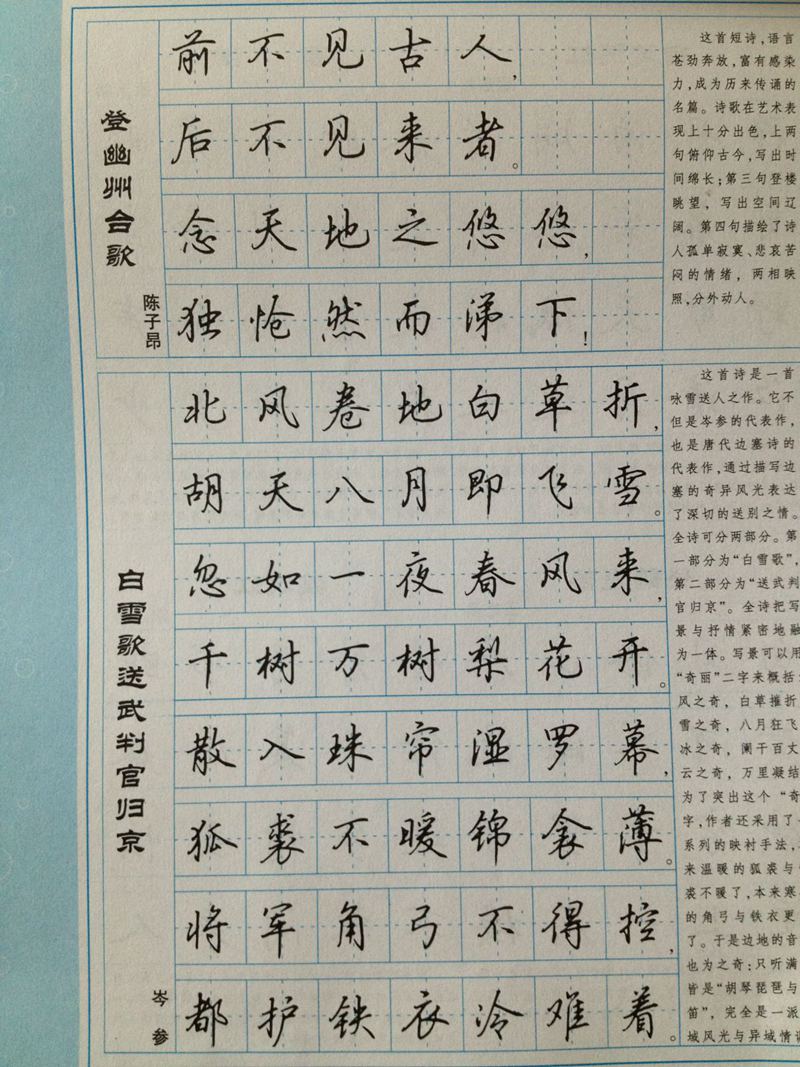 登幽州台歌
陈子昂
前不见古人，
后不见来者。
念天地之悠悠，
独怆然而涕下！
这首短诗，语言
苍劲奔放，富有感染
力，成为历来传诵的
名篇。诗歌在艺术表
现上十分出色，上两
句俯仰古今，写出时
间绵长；第三句登楼
眺望，写出空间辽
阔。第四句描绘了诗
人孤单寂寞、悲哀苦
闷的情绪，两相映
照，分外动人。
白雪歌送武判官归京
岑参
北风卷地白草折，
胡天八月即飞雪。
忽如一夜春风来，
千树万树梨花开。
散入珠帘湿罗幕，
狐裘不暖锦衾薄。
将军角弓不得控，
都护铁衣冷难着。
这首诗是一首
咏雪送人之作。它不
但是岑参的代表作，
也是唐代边塞诗的
代表作，通过描写边
塞的奇异风光表达
了深切的送别之情。
全诗可分两部分。第
一部分为“白雪歌”，
第二部分为“送武判
官归京”。全诗把写
景与抒情紧密地融
为一体。写景可以用
“奇丽”二字来概括
风之奇，白草摧折
雪之奇，八月狂飞
冰之奇，阑干百丈
云之奇，万里凝结
为了突出这个“奇
字，作者还采用了
系列的映衬手法，
来温暖的狐裘与
裘不暖了，本来寒
的角弓与铁衣更
了。于是边地的音
也为之奇：只听满
皆是“胡琴琵琶与
笛”，完全是一派
域风光与异域情